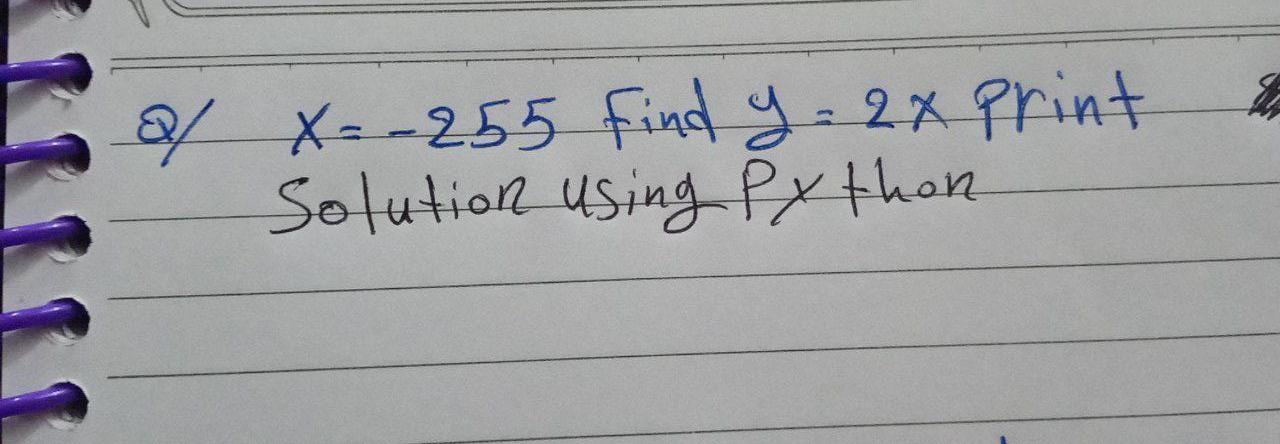 Q/ X = -255 Find y = 2x Print
Solution using Python